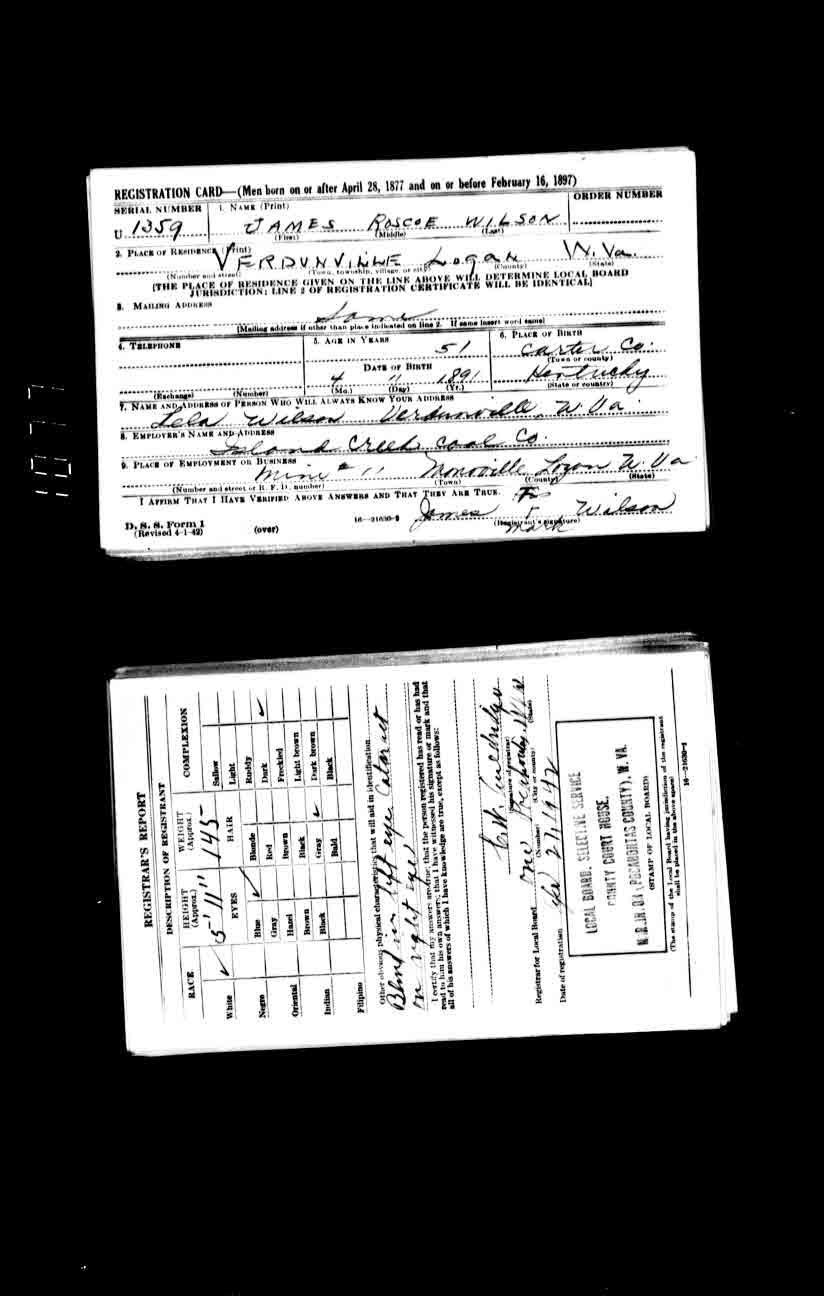 REGISTRATION CARD—(Men born on or after April 28, 1877 and on or before February 16, 1897)
SERIAL NUMBER
1. NAME (Print)
ORDER NUMBER
U 1359
JAMES ROSCOE WILSON
(First) (Middle) (Last)
2. PLACE OF RESIDENCE (Print)
VERDUNVILLE Logan W. Va.
(Number and street) (Town, township, village, or city) (County) (State)
[THE PLACE OF RESIDENCE GIVEN ON THE LINE ABOVE WILL DETERMINE LOCAL BOARD
JURISDICTION; LINE 2 OF REGISTRATION CERTIFICATE WILL BE IDENTICAL]
3. MAILING ADDRESS
Same
[Mailing address if other than place indicated on line 2. If same insert word same]
4. TELEPHONE
5. AGE IN YEARS
51
6. PLACE OF BIRTH
Carter Co.
(Town or county)
DATE OF BIRTH
4 11 1891
Kentucky
(Exchange) (Number)
(Mo.) (Day) (Yr.)
(State or country)
7. NAME AND ADDRESS OF PERSON WHO WILL ALWAYS KNOW YOUR ADDRESS
Lela Wilson Verdunville W. Va
8. EMPLOYER'S NAME AND ADDRESS
Island Creek Coal Co.
9. PLACE OF EMPLOYMENT OR BUSINESS
Mine # 11 Monoville Logan W. Va
(Number and street or R. F. D. number) (Town) (County) (State)
I AFFIRM THAT I HAVE VERIFIED ABOVE ANSWERS AND THAT THEY ARE TRUE.
James Wilson
D. S. S. Form 1
(Revised 4-1-42)
(over)
16—21630-2
(Registrant's signature)
mark
REGISTRAR'S REPORT
DESCRIPTION OF REGISTRANT
RACE
HEIGHT (Approx.)
WEIGHT (Approx.)
COMPLEXION
5' 11"
145
White
Negro
Oriental
Indian
Filipino
EYES
Blue
Gray
Hazel
Brown
Black
HAIR
Blonde
Red
Brown
Black
Gray
Bald
Sallow
Light
Ruddy
Dark
Freckled
Light brown
Dark brown
Black
Other obvious physical characteristics that will aid in identification
Blind in left eye Cataract
on right eye
I certify that my answers are true; that the person registered has read or has had
read to him his own answers; that I have witnessed his signature or mark and that
all of his answers of which I have knowledge are true, except as follows:
(Signature of registrar)
Registrar for Local Board
One
(Number) (City or county) (State)
Date of registration
21, 1942
LOCAL BOARD, SELECTIVE SERVICE
COUNTY COURT HOUSE,
(POCAHONTAS COUNTY), W. VA.
(STAMP OF LOCAL BOARD)
(The stamp of the Local Board having jurisdiction of the registrant
shall be placed in the above space)
16—21630-1